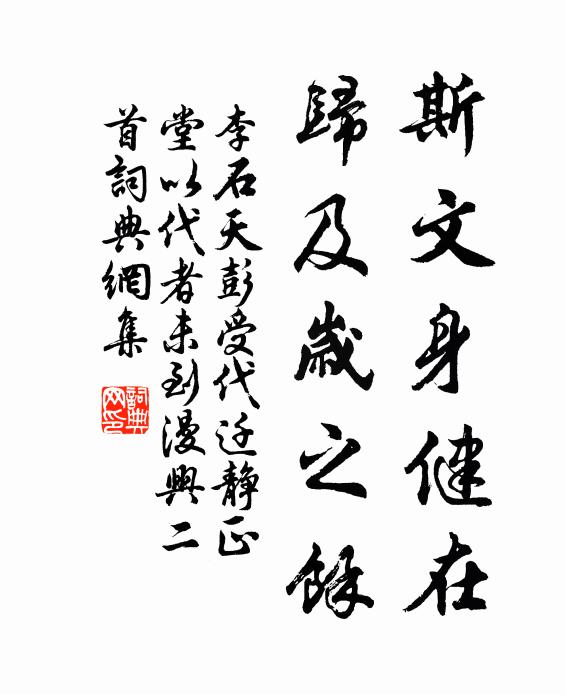 斯文身健在
歸及歲之餘
李石天彭受代迁靜正
堂以代者未到漫興二
首詞典網集
詞典
网印